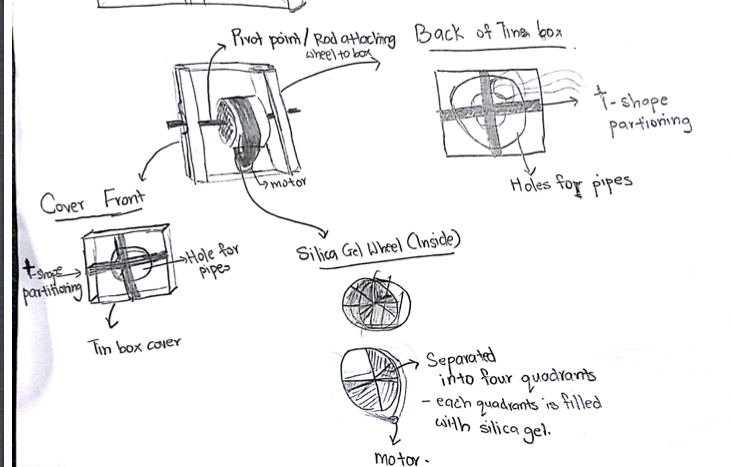 Pivot point / Rod attaching
wheel to box
Back of Tin box
t-shape
partioning
motor
Holes for pipes
Cover Front
Hole for
pipes
t-shape
partitioning
Tin box cover
Silica Gel Wheel (Inside)
Separated
into four quadrants
- each quadrants is filled
with silica gel.
motor.